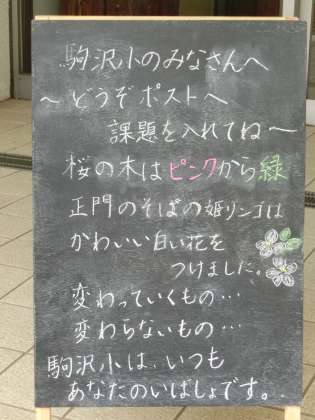 駒沢小のみなさんへ
～どうぞポストへ
課題を入れてね～
桜の木はピンクから緑
正門のそばの姫リンゴは
かわいい白い花を
つけました。
変わっていくもの…
変わらないもの…
駒沢小は、いつも
あなたのいばしょです。